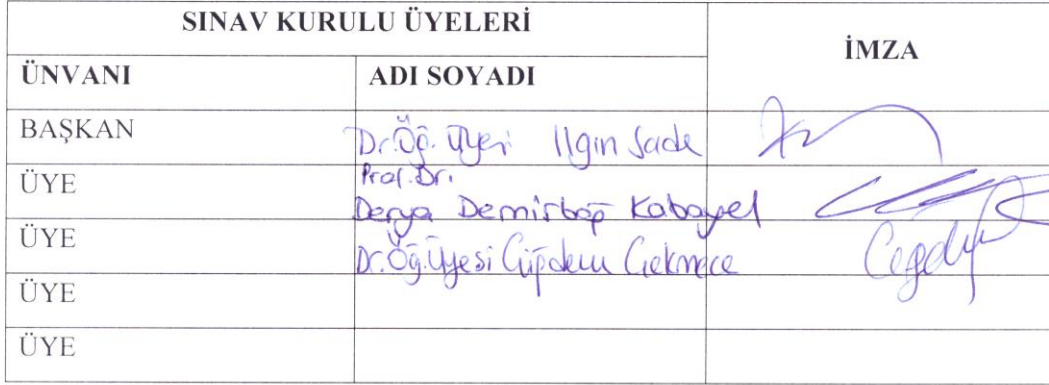 SINAV KURULU ÜYELERİ
İMZA
ÜNVANI ADI SOYADI
BAŞKAN Dr.Öğ. Üyesi Ilgın Sade
ÜYE Prof.Dr.
Derya Demirbağ Kabayel
ÜYE Dr.Öğ.Üyesi Çiğdem Çekmece Çiğdem
ÜYE
ÜYE